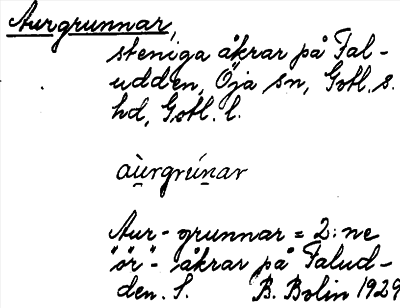 Aurgrunnar,
steniga åkrar på Fal-
udden, Öja sn, Gotl. s.
hd, Gotl. l.
au̯rgrúnar
Aur-grunnar = 2:ne
"ör"- åkrar på Falud-
den. S. B. Bolin 1929